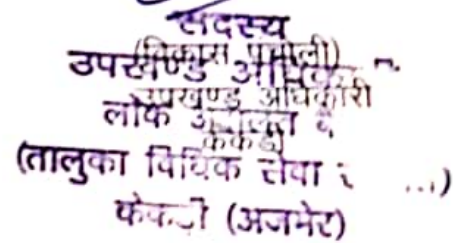 सदस्य
(विकास पंचोली)
उपखण्ड
उपखण्ड अधिकारी
लोक अदालत
केकड़ी
(तालुका विधिक सेवा
केकड़ी (अजमेर)